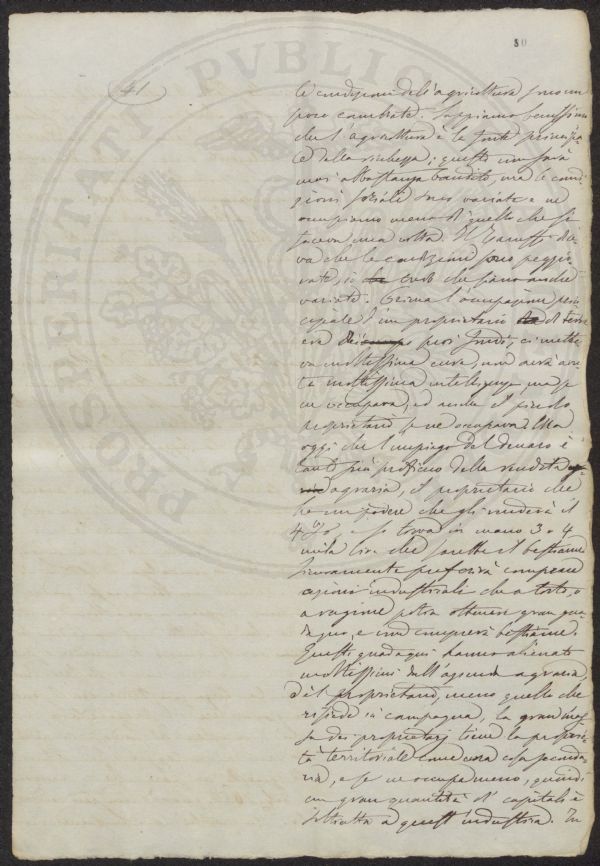 80
41
le condizioni dell'agricoltura sono un
poco cambiate. Sappiamo benissimo
che l'agricoltura è la fonte principa-
le della ricchezza; questo non sarà
mai abbastanza bandito, ma le condi
zioni sociali sono variate e ne
occupiamo meno di quello che si
faceva una volta. Il dice-
va che le condizioni sono peggio
rate, io credo che siano anche
variate. Prima l'occupazione prin
cipale d'un proprietario di terre
era i suoi fondi, ci mette
va moltissima cura, non avrà avu
ta moltissima intelligenza, ma se
ne occupava, ed anche il piccolo
proprietario se ne occupava. Ma
oggi che l'impiego del denaro è
tanto più proficuo della rendita
agraria, il proprietario che
ha un podere che gli renderà il
4 %, e si trova in mano 3 o 4
mila lire che sarebbe il bestiame
sicuramente preferirà comprare
azioni industriali che a torto, o
a ragione potrà ottenere gran gua
dagno, e non comprerà bestiame.
Questi guadagni hanno alienato
moltissimi dall'azienda agraria,
il proprietario, meno quello che
risiede in campagna, la gran mas
sa dei proprietarj tiene la proprie
tà territoriale come cosa seconda
ria, e se ne occupa meno, quindi
una gran quantità di capitali è
sottratta a quest'industria. In